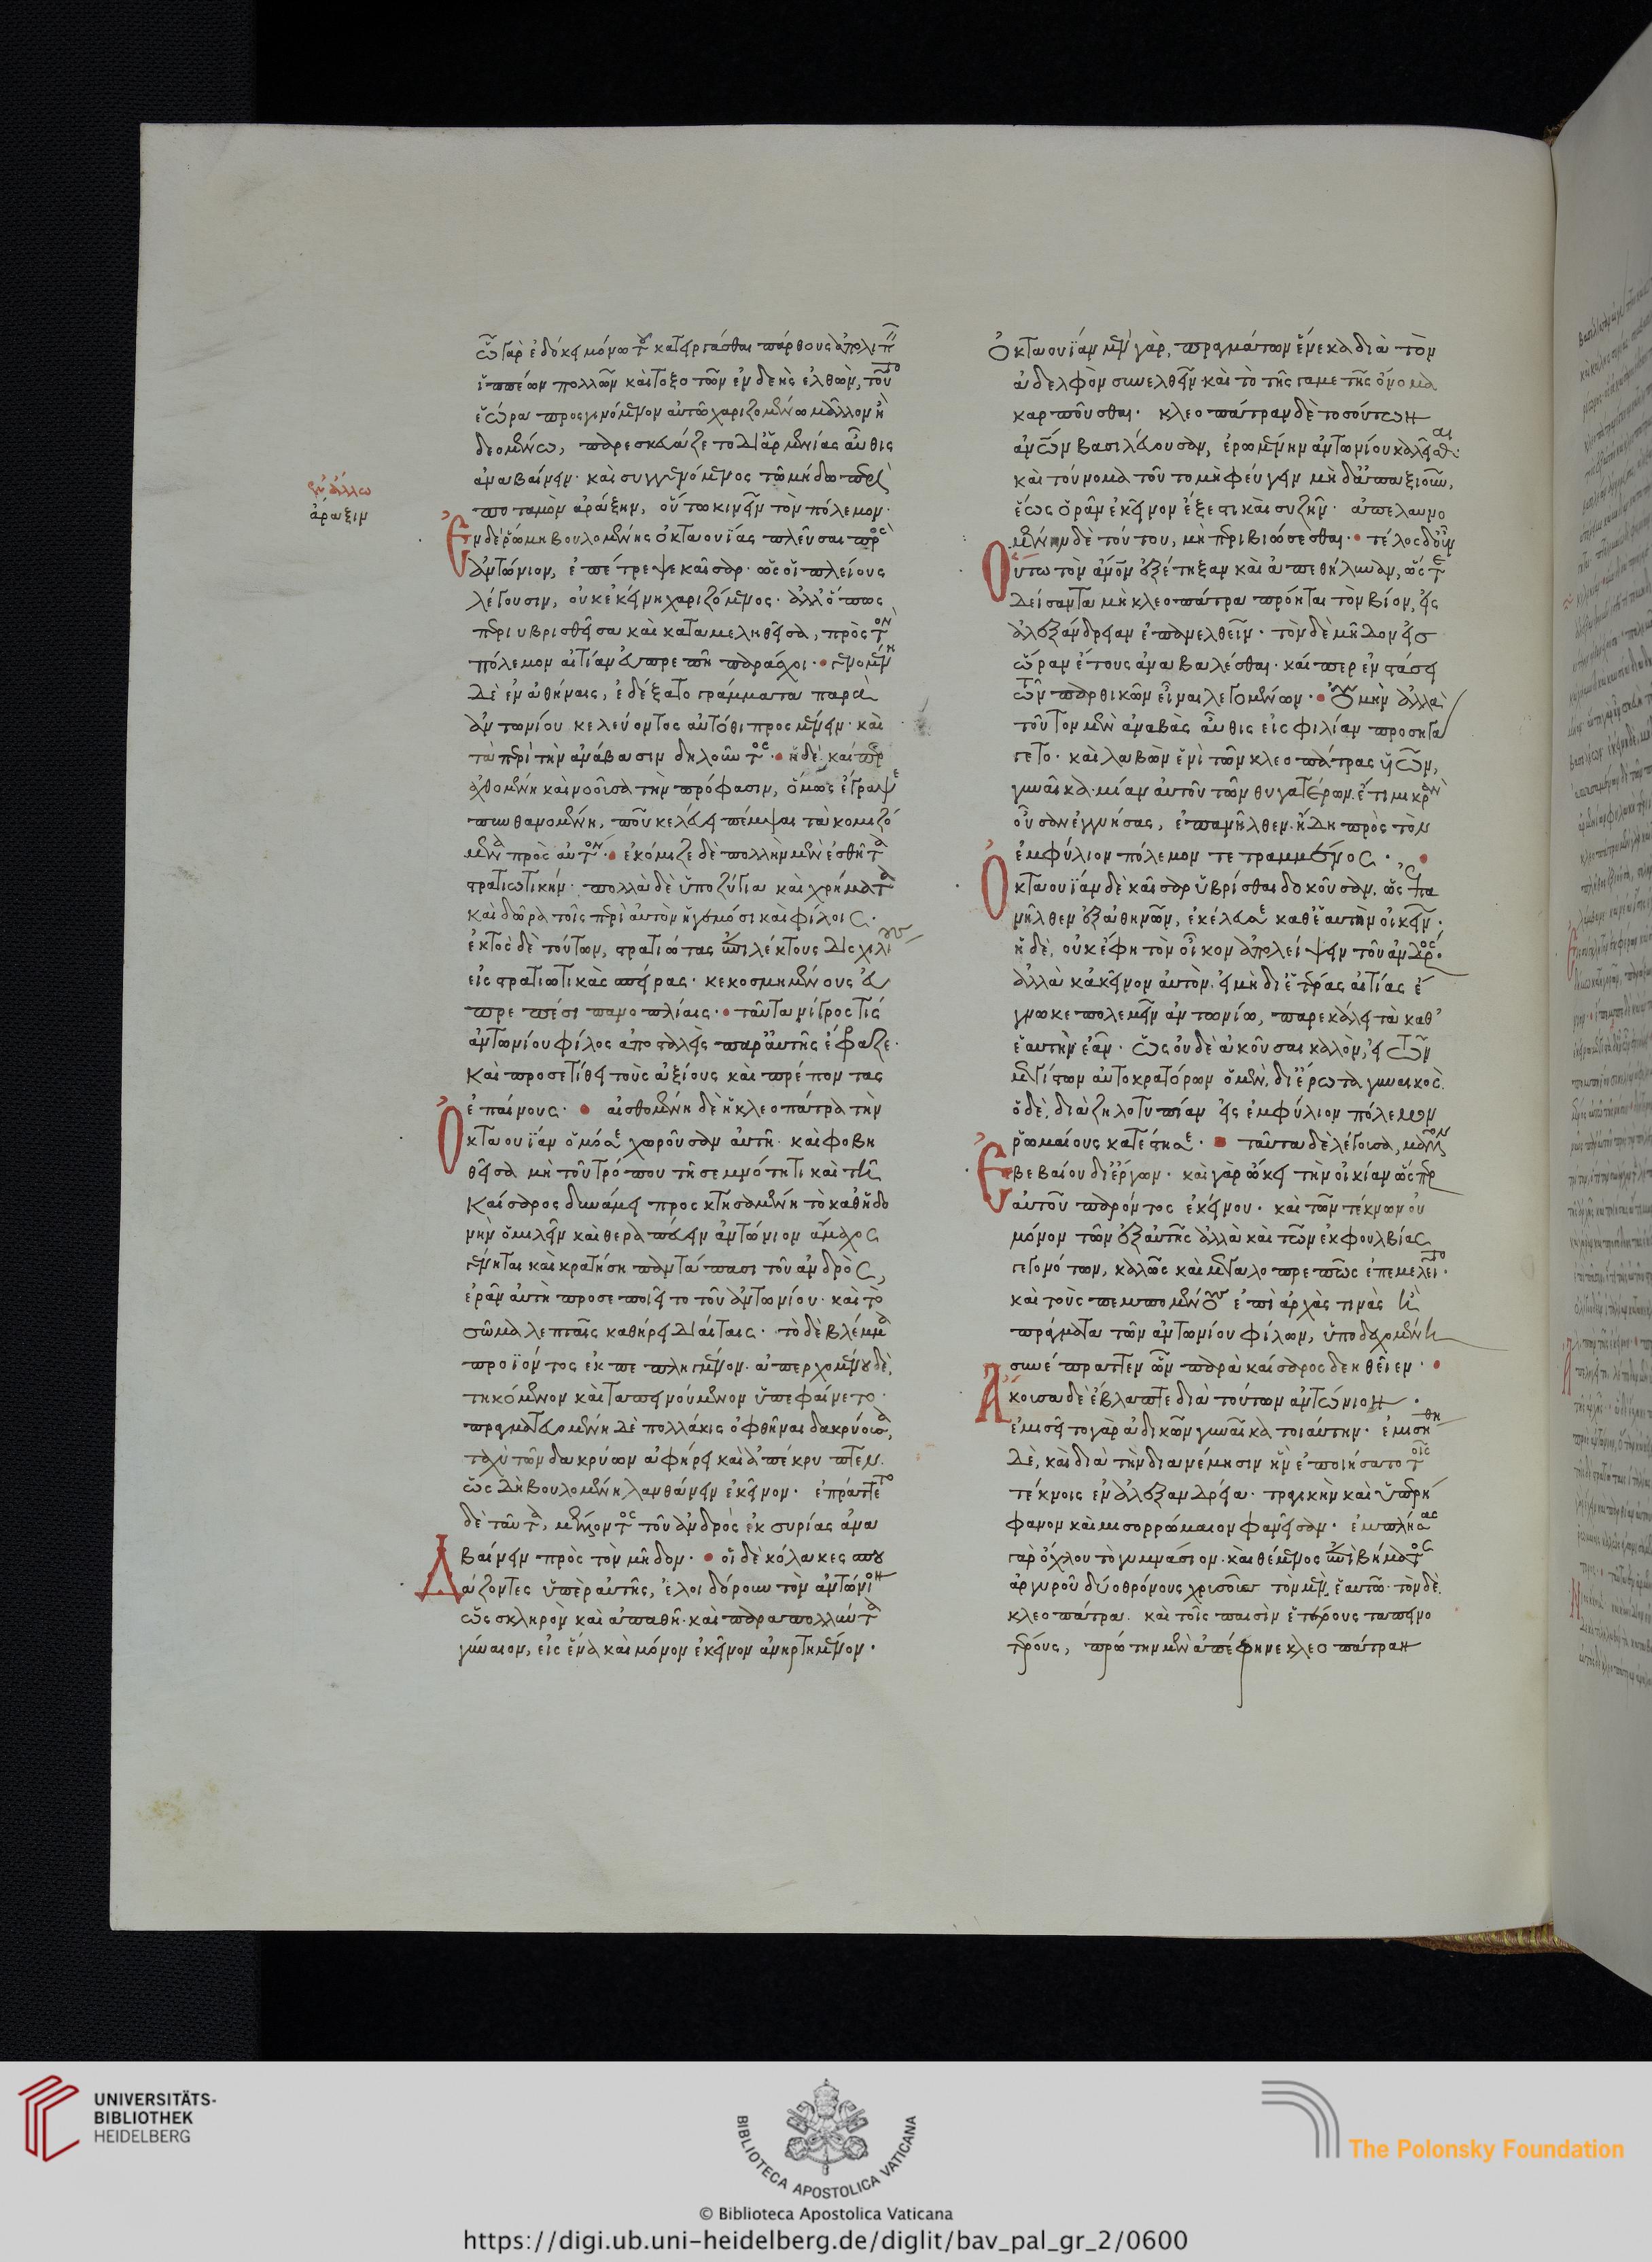 ὧ γὰρ ἐδόκει μόνω τοῦ κατειργάσθαι πάρθους ἀπολιπεῖν
ἱππέων πολλῶν καὶ τοξοτῶν ἐνδεὴς ἐλθὼν, τοῦτο
ἑώρα προσγινόμενον αὐτῶ χαριζομένω μᾶλλον ἢ
δεομένω, παρεσκευάζετο δι' ἀρμενίας αὖθις
ἀναβαίνειν· καὶ συγγενόμενος τῶ μήδω περὶ
ποταμὸν ἀράξην, οὕτω κινεῖν τὸν πόλεμον·
ἐν ἄλλω
ἀράξιν
Ἐν δὲ ῥώμη βουλομένης ὀκταουΐας πλεῦσαι πρὸς
ἀντώνιον, ἐπέτρεψε καῖσαρ· ὡς οἱ πλείους
λέγουσιν, οὐκ ἐκείνη χαριζόμενος· ἀλλ' ὅπως
περιυβρισθεῖσα καὶ καταμεληθεῖσα, πρὸς τὸν
πόλεμον αἰτίαν εὐπρεπῆ παράσχοι· γενομένη
δὲ ἐν ἀθήναις, ἐδέξατο γράμματα παρὰ
ἀντωνίου κελεύοντος αὐτόθι προσμένειν· καὶ
τὰ περὶ τὴν ἀνάβασιν δηλοῦντος· ἡ δὲ, καίπερ
ἀχθομένη καὶ νοοῦσα τὴν πρόφασιν, ὅμως ἔγραψε
πυνθανομένη, ποῦ κελεύει πέμψαι τὰ κομιζό
μενα πρὸς αὐτόν· ἐκόμιζε δὲ πολλὴν μὲν ἐσθῆτα
στρατιωτικήν· πολλὰ δὲ ὑποζύγια καὶ χρήματα
καὶ δῶρα τοῖς περὶ αὐτὸν ἡγεμόσι καὶ φίλοις·
ἐκτὸς δὲ τούτων, στρατιώτας ἐπιλέκτους δισχιλίους
εἰς στρατιωτικὰς σπείρας· κεκοσμημένους εὐ
πρεπέσι πανοπλίαις· ταῦτα νίγρος τίς
ἀντωνίου φίλος ἀποσταλεὶς παρ' αὐτῆς ἔφραζε·
καὶ προσετίθει τοὺς ἀξίους καὶ πρέποντας
ἐπαίνους· αἰσθομένη δὲ ἡ κλεοπάτρα τὴν
Ὀκταουΐαν ὁμόσε χωροῦσαν αὐτῆ· καὶ φοβη
θεῖσα μὴ τοῦ τρόπου τῆ σεμνότητι καὶ τῆ
καίσαρος δυνάμει προσκτησαμένη τὸ καθ' ἡδο
νὴν ὁμιλεῖν καὶ θεραπεύειν ἀντώνιον ἄμαχος
γένηται καὶ κρατήση παντάπασι τοῦ ἀνδρὸς,
ἐρᾶν αὐτὴ προσεποιεῖτο τοῦ ἀντωνίου· καὶ τὸ
σῶμα λεπταῖς καθήρει διαίταις· τὸ δὲ βλέμμα
προϊόντος ἐκπεπληγμένον· ἀπερχομένου δὲ,
τηκόμενον καὶ ταπεινούμενον ὑπεφαίνετο·
πραγματευομένη δὲ πολλάκις ὀφθῆναι δακρύουσα,
ταχὺ τῶν δακρύων ἀφήρει καὶ ἀπέκρυπτεν·
ὡς δὴ βουλομένη λανθάνειν ἐκεῖνον· ἐπράττετο
δὲ ταῦτα, μέλλοντος τοῦ ἀνδρὸς ἐκ συρίας ἀνα
βαίνειν πρὸς τὸν μῆδον· οἱ δὲ κόλακες σπου
Δάζοντες ὑπὲρ αὐτῆς, ἐλοιδόρουν τὸν ἀντώνιον
ὡς σκληρὸν καὶ ἀπαθῆ· καὶ παραπολλύντα
γύναιον, εἰς ἕνα καὶ μόνον ἐκεῖνον ἀνηρτημένον·
Ὀκταουΐαν μὲν γὰρ, πραγμάτων ἕνεκα διὰ τὸν
ἀδελφὸν συνελθεῖν καὶ τὸ τῆς γαμετῆς ὄνομα
καρποῦσθαι· κλεοπάτραν δὲ τοσούτων
ἀνθρώπων βασιλεύουσαν, ἐρωμένην ἀντωνίου καλεῖσθαι·
καὶ τοὔνομα τοῦτο μὴ φεύγειν μὴ δ' ἀπαξιοῦν,
ἕως ὁρᾶν ἐκεῖνον ἔξεστι καὶ συζῆν· ἀπελαυνο
μένην δὲ τούτου, μὴ περιβιώσεσθαι· τέλος δ' οὖν
Οὕτω τὸν ἄνθρωπον ἐξέτηξαν καὶ ἀπεθήλυναν, ὥστε
δείσαντα μὴ κλεοπάτρα πρόηται τὸν βίον, εἰς
ἀλεξάνδρειαν ἐπανελθεῖν· τὸν δὲ μῆδον εἰς
ὥραν ἔτους ἀναβαλέσθαι· καίπερ ἐν στάσει
τῶν παρθικῶν εἶναι λεγομένων· οὐ μὴν ἀλλὰ
τοῦτον μὲν ἀναβὰς αὖθις εἰς φιλίαν προσηγά
γετο· καὶ λαβὼν ἑνὶ τῶν κλεοπάτρας υἱῶν,
γυναῖκα μίαν αὐτοῦ τῶν θυγατέρων ἔτι μικρὰν
οὖσαν ἐγγυήσας, ἐπανῆλθεν ἤδη πρὸς τὸν
ἐμφύλιον πόλεμον τετραμμένος·
Ὀκταουΐαν δὲ καῖσαρ ὑβρίσθαι δοκοῦσαν, ὡς ἐπα
νῆλθεν ἐξ ἀθηνῶν, ἐκέλευσε καθ' ἑαυτὴν οἰκεῖν·
ἡ δὲ, οὐκ ἔφη τὸν οἶκον ἀπολείψειν τοῦ ἀνδρός·
ἀλλὰ κἀκεῖνον αὐτὸν, εἰ μὴ δι' ἑτέρας αἰτίας ἔ
γνωκε πολεμεῖν ἀντωνίω, παρεκάλει τὰ καθ'
ἑαυτὴν ἐᾶν· ὡς οὐδὲ ἀκοῦσαι καλὸν, εἰ τῶν
μεγίστων αὐτοκρατόρων ὁ μὲν, δι' ἔρωτα γυναικὸς·
ὁ δὲ, διὰ ζηλοτυπίαν εἰς ἐμφύλιον πόλεμον
ῥωμαίους κατέστησε· ταῦτα δὲ λέγουσα, μᾶλλον
Ἐβεβαίου δι' ἔργων· καὶ γὰρ ὤκει τὴν οἰκίαν ὥσπερ
αὐτοῦ παρόντος ἐκείνου· καὶ τῶν τέκνων οὐ
μόνον τῶν ἐξ αὐτῆς ἀλλὰ καὶ τῶν ἐκ φουλβίας
γεγονότων, καλῶς καὶ μεγαλοπρεπῶς ἐπεμελεῖτο·
καὶ τοὺς πεμπομένους ἐπὶ ἀρχάς τινας ἢ
πράγματα τῶν ἀντωνίου φίλων, ὑποδεχομένη
συνέπραττεν ὧν παρὰ καίσαρος δεηθεῖεν·
Ἄκουσα δὲ ἔβλαπτε διὰ τούτων ἀντώνιον·
ἐμισεῖτο γὰρ ἀδικῶν γυναῖκα τοιαύτην· ἐμισήθη
δὲ, καὶ διὰ τὴν διανέμησιν ἣν ἐποιήσατο τοῖς
τέκνοις ἐν ἀλεξανδρεία· τραγικὴν καὶ ὑπερή
φανον καὶ μισορρώμαιον φανεῖσαν· ἐμπλήσας
γὰρ ὄχλου τὸ γυμνάσιον· καὶ θέμενος ἐπὶ βήματος
ἀργυροῦ δύο θρόνους χρυσοῦς τὸν μὲν, ἑαυτῶ· τὸν δὲ,
κλεοπάτρα· καὶ τοῖς παισὶν ἑτέρους ταπεινο
τέρους, πρώτην μὲν ἀπέφηνε κλεοπάτραν
UNIVERSITÄTS-
BIBLIOTHEK
HEIDELBERG
BIBLIOTECA APOSTOLICA VATICANA
The Polonsky Foundation
© Biblioteca Apostolica Vaticana
https://digi.ub.uni-heidelberg.de/diglit/bav_pal_gr_2/0600